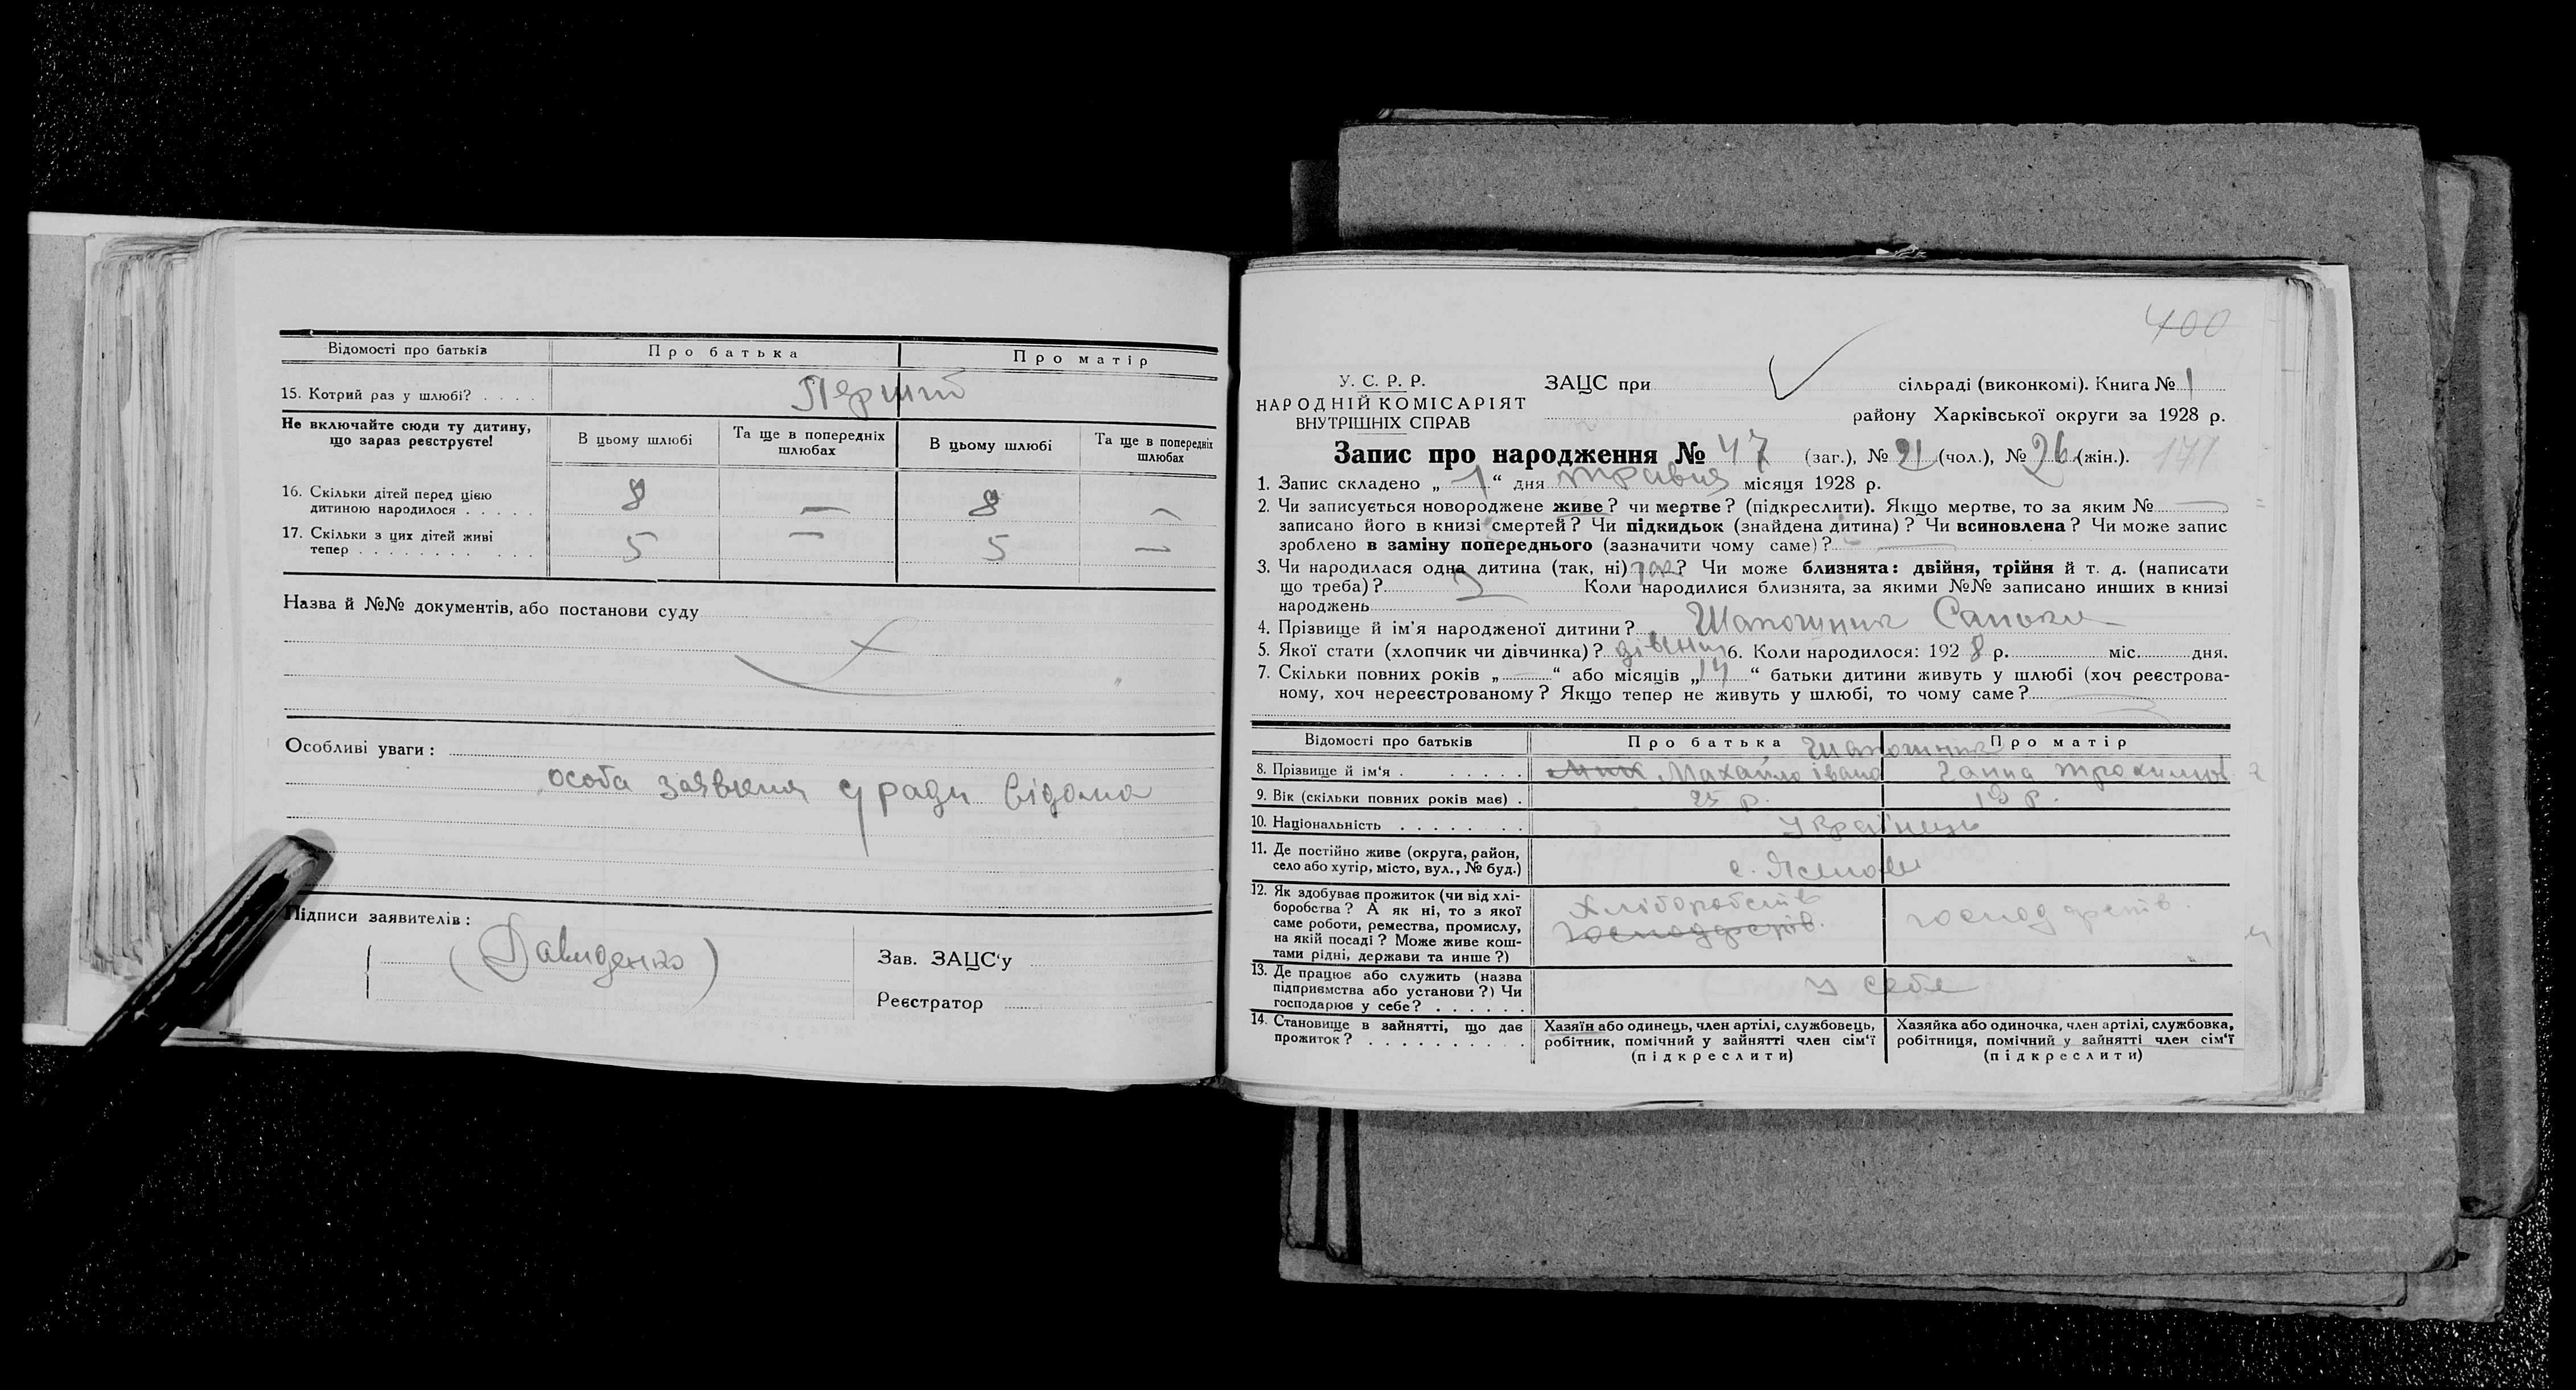 Відомості про батьків Про батька Про матір
15. Котрий раз у шлюбі? . . . . Перший
Не включайте сюди ту дитину,
що зараз реєструєте!
В цьому шлюбі Та ще в попередніх шлюбах В цьому шлюбі Та ще в попередніх шлюбах
16. Скільки дітей перед цією
дитиною народилося . . . . . 8 — 8 —
17. Скільки з цих дітей живі
тепер . . . . . . . . . . . 5 — 5 —
Назва й №№ документів, або постанови суду
Особливі уваги:
особа заявния у ради відома
Підписи заявителів:
(Давиденко)
Зав. ЗАЦС'у
Реєстратор
400
У. С. Р. Р.
НАРОДНІЙ КОМІСАРІЯТ
ВНУТРІШНІХ СПРАВ
ЗАЦС при сільраді (виконкомі). Книга № 1
району Харківської округи за 1928 р.
Запис про народження № 47 (заг.), № 21 (чол.), № 26 (жін.). 171
1. Запис складено „ 1 “ дня травня місяця 1928 р.
2. Чи записується новороджене живе? чи мертве? (підкреслити). Якщо мертве, то за яким № —
записано його в книзі смертей? Чи підкидьок (знайдена дитина)? Чи всиновлена? Чи може запис
зроблено в заміну попереднього (зазначити чому саме)? —
3. Чи народилася одна дитина (так, ні) так? Чи може близнята: двійня, трійня й т. д. (написати
що треба)? Коли народилися близнята, за якими №№ записано инших в книзі
народжень
4. Прізвище й ім'я народженої дитини? Шапошник Санька
5. Якої стати (хлопчик чи дівчинка)? 6. Коли народилося: 1928 р. міс. дня.
7. Скільки повних років „ “ або місяців „ “ батьки дитини живуть у шлюбі (хоч реєстрова-
ному, хоч нереєстрованому? Якщо тепер не живуть у шлюбі, то чому саме?
Відомості про батьків Про батька Про матір
Шапошник
8. Прізвище й ім'я . . . . . . Махайло івано Ганна
9. Вік (скільки повних років має) . 25 р. 19 р.
10. Національність . . . . . . . Українець
11. Де постійно живе (округа, район,
село або хутір, місто, вул., № буд.)
с.
12. Як здобуває прожиток (чи від хлі-
боробства? А як ні, то з якої
саме роботи, ремества, промислу,
на якій посаді? Може живе кош-
тами рідні, держави та инше?)
Хліборобств
господарств. господарств.
13. Де працює або служить (назва
підприємства або установи?) Чи
господарює у себе? . . . . . .
у себе
14. Становище в зайнятті, що дає
прожиток? . . . . . . . . . .
Хазяїн або одинець, член артілі, службовець,
робітник, помічний у зайнятті член сім'ї
(підкреслити)
Хазяйка або одиночка, член артілі, службовка,
робітниця, помічний у зайнятті член сім'ї
(підкреслити)